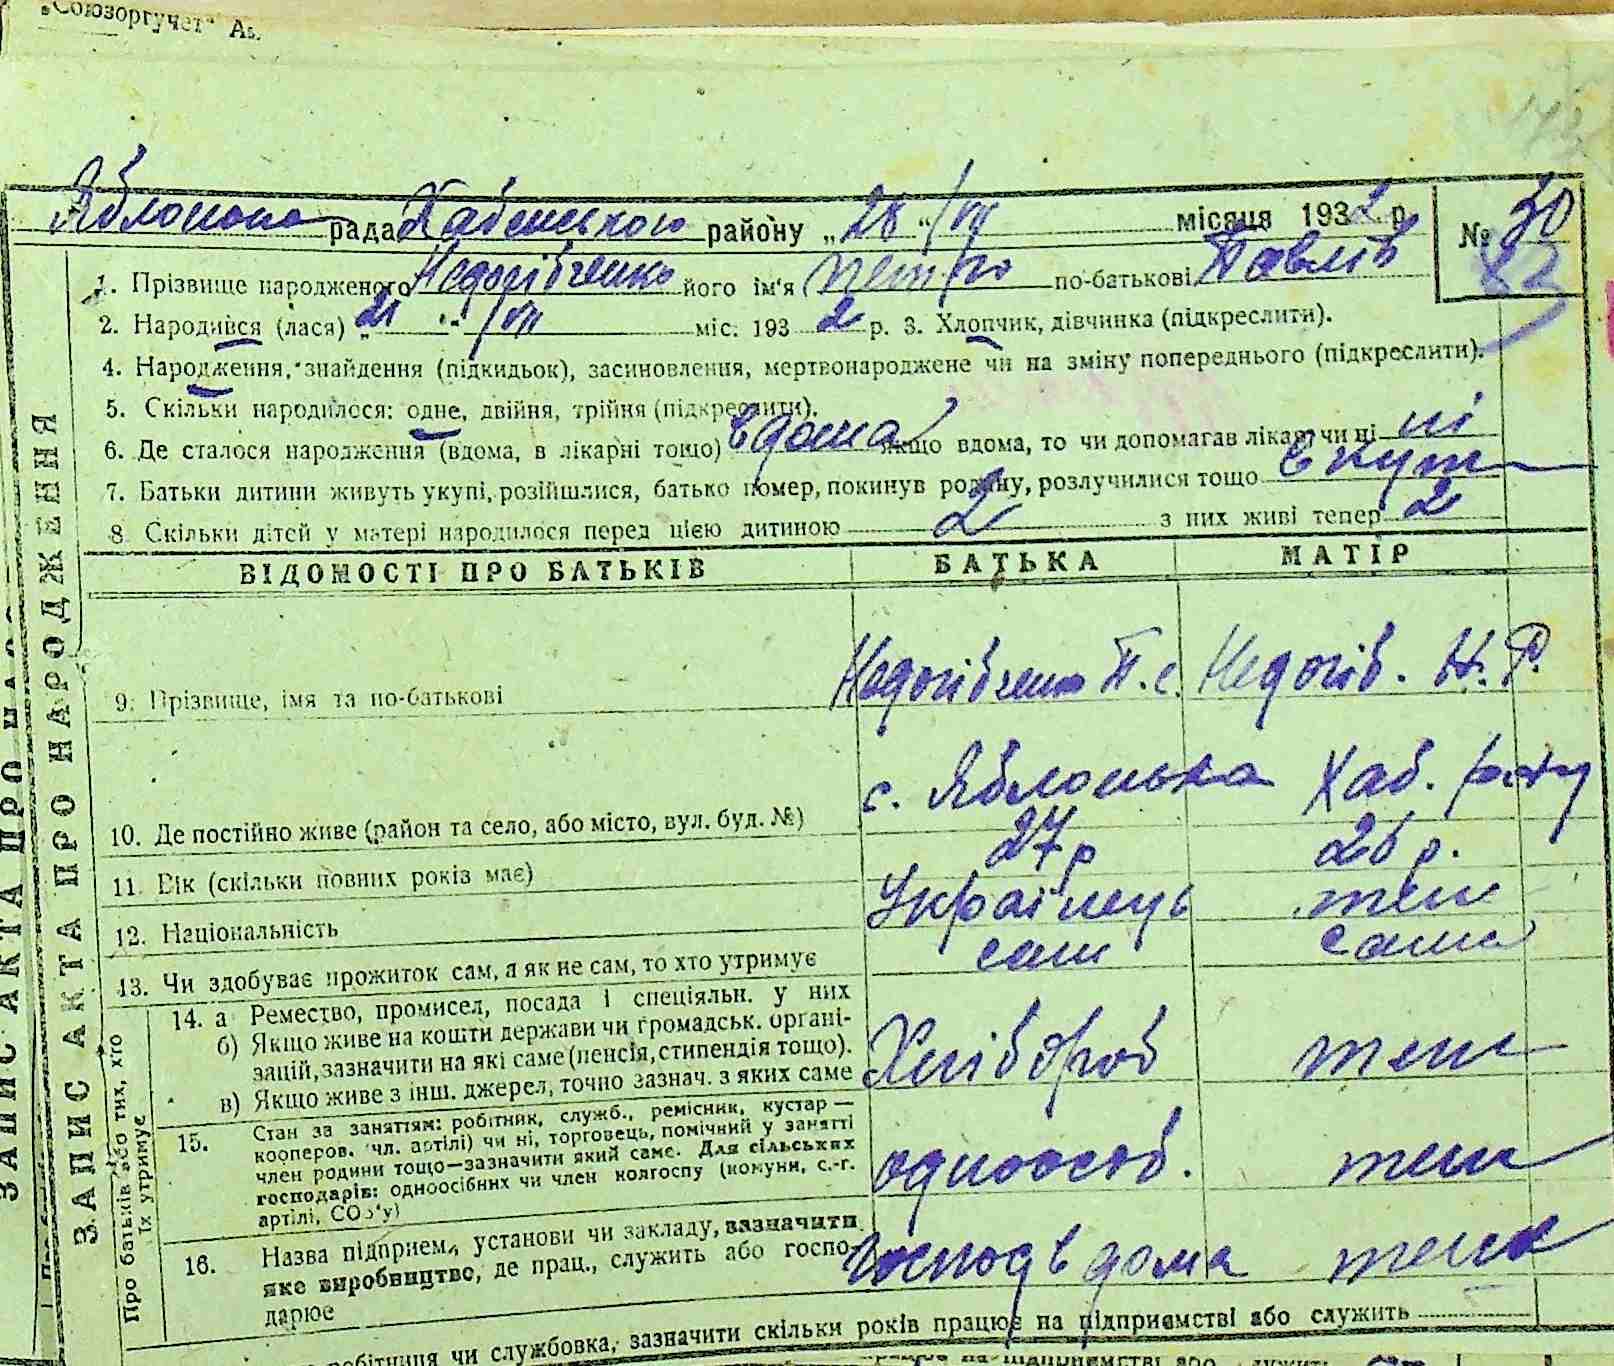 „Союзоргучет“
Яблонська рада Хабенського району „28“ /VII місяця 1932 р. № 30
82
1. Прізвище народженого Недогібченко його ім'я Петро по-батькові Павлів
2. Народився (лася) „21“ /VII міс. 193 2 р. 3. Хлопчик, дівчинка (підкреслити).
4. Народження, знайдення (підкидьок), засиновлення, мертвонароджене чи на зміну попереднього (підкреслити).
5. Скільки народилося: одне, двійня, трійня (підкреслити).
6. Де сталося народження (вдома, в лікарні тощо) вдома якщо вдома, то чи допомагав лікар чи ні ні
7. Батьки дитини живуть укупі, розійшлися, батько помер, покинув родину, розлучилися тощо вкупі
8. Скільки дітей у матері народилося перед цією дитиною 2 з них живі тепер 2
ВІДОМОСТІ ПРО БАТЬКІВ БАТЬКА МАТІР
9. Прізвище, імя та по-батькові Недогібченко П. С. Недогіб. Н. Р.
10. Де постійно живе (район та село, або місто, вул. буд. №) с. Яблонька Хаб. р-ну
11. Вік (скільки повних років має) 27 р 26 р.
12. Національність Українець теж
13. Чи здобуває прожиток сам, а як не сам, то хто утримує сам сама
14. а Ремество, промисел, посада і спеціяльн. у них
б) Якщо живе на кошти держави чи громадськ. органі-
зацій, зазначити на які саме (пенсія, стипендія тощо).
в) Якщо живе з інш. джерел, точно зазнач. з яких саме Хлібороб теж
15. Стан за заняттям: робітник, служб., ремісник, кустар —
кооперов. чл. артілі) чи ні, торговець, помічний у занятті
член родини тощо—зазначити який саме. Для сільських
господарів: одноосібних чи член колгоспу (комуни, с.-г.
артілі, СОЗ'у) одноособ. теж
16. Назва підприєм., установи чи закладу, зазначити
яке виробництво, де прац., служить або госпо-
дарює господ вдома теж
робітниця чи службовка, зазначити скільки років працює на підприємстві або служить
ЗАПИС АКТА ПРО НАРОДЖЕННЯ
Про батьків або тих, хто
їх утримує
ЗАПИС АКТА ПРО НАРО